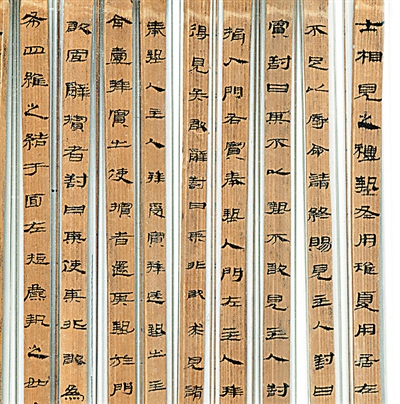 士相見之禮摯冬用雉夏用居左
不足以辱命請終賜見主人對曰
賓對曰某不以摯不敢見主人對
揖入門右賓奉摯入門左主人拜
得見矣敢辭對曰某非敢求見請
奉摯入主人拜受賓拜送摯出主
命壹拜賓出使擯者還其摯於門
敢固辭擯者對曰某使某非敢為
布四維之結于面左執之如